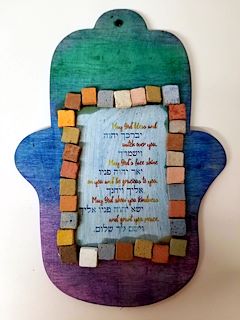 May God bless and
יברכך יהוה
watch over you
וישמרך
May God's face shine
יאר יהוה פניו
on you and be gracious to you
אליך ויחנך
May God show you kindness
ישא יהוה פניו אליך
and grant you peace
וישם לך שלום.